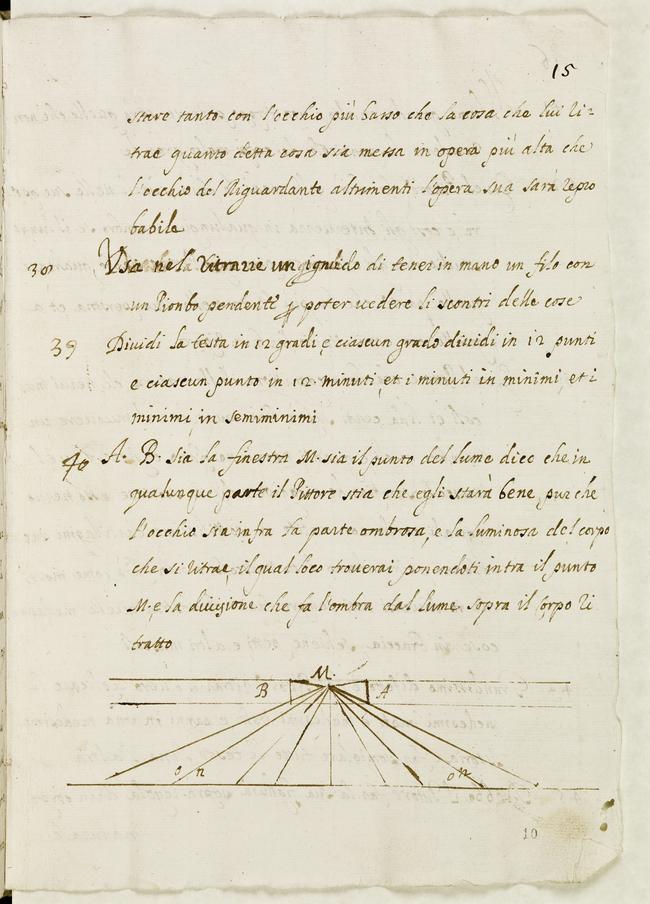 15
stare tanto con l'occhio più basso che la cosa che lui ri=
trae quanto detta cosa sia messa in opera più alta che
l'occhio del Riguardante altrimenti l'opera sua sarà repro
babile
38 Usia nel ritrarre un di tener in mano un filo con
un Pionbo pendente p poter vedere li scontri delle cose
39 Dividi la testa in 12 gradi, e ciascun grado dividi in 12 punti
e ciascun punto in 12 minuti, et i minuti in minimi, et i
minimi, in semiminimi
40 A. B. sia la finestra M. sia il punto del lume dico che in
qualunque parte il Pittore stia che egli starà bene, pur che
l'occhio sia infra la parte ombrosa, e la luminosa del corpo
che si ritrae, il qual loco troverai ponendoti intra il punto
M. e la divisione che fa l'ombra dal lume sopra il corpo ri
tratto
M.
B A
o n o n
10